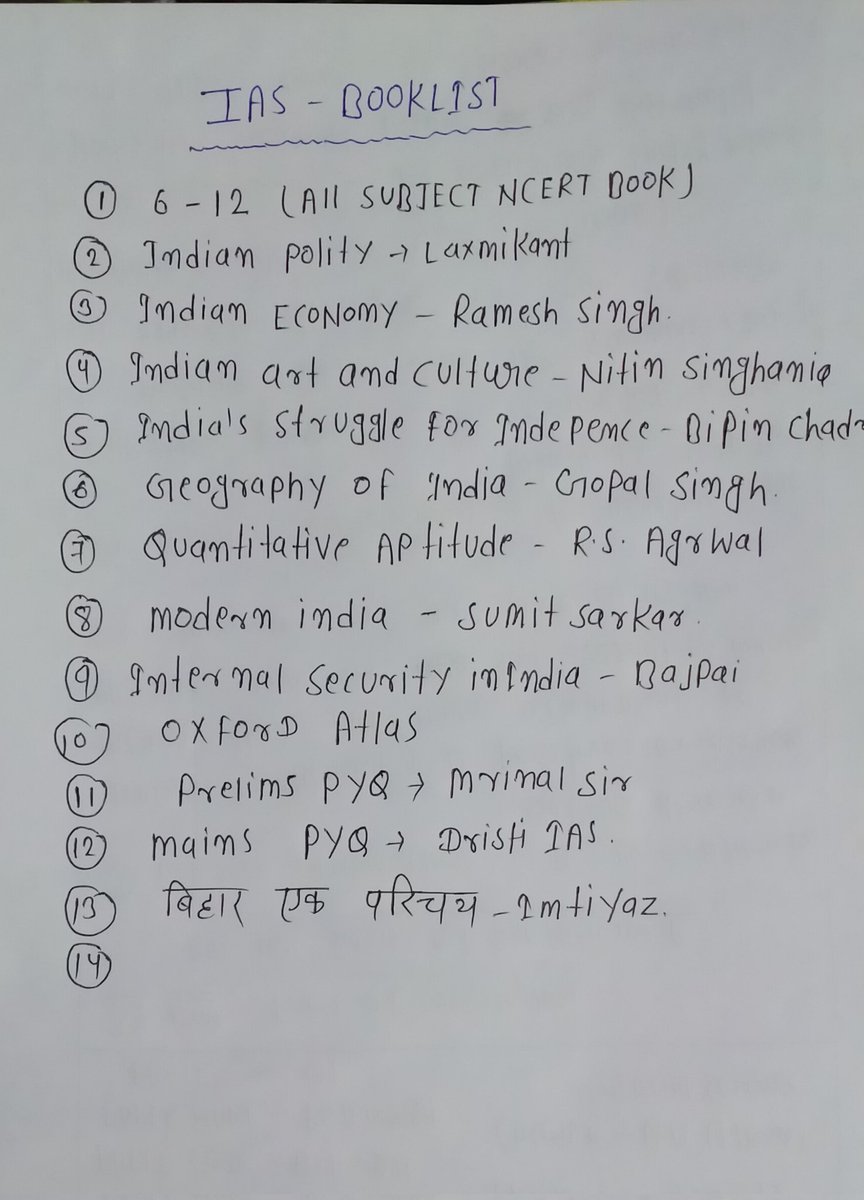 IAS - BOOKLIST
① 6-12 (All SUBJECT NCERT BOOK)
② Indian polity → Laxmikant
③ Indian ECONOMY - Ramesh Singh.
④ Indian art and culture - Nitin Singhania
⑤ India's Struggle for Indepence - Bipin Chad
⑥ Geography of India - Gopal Singh.
⑦ Quantitative APtitude - R.S. Agrwal
⑧ modern india - Sumit Sarkar.
⑨ Internal Security in India - Bajpai
⑩ OXFORD Atlas
⑪ Prelims PYQ → Mrinal Sir
⑫ mains PYQ → Dristi IAS.
⑬ बिहार एक परिचय - Imtiyaz.
⑭